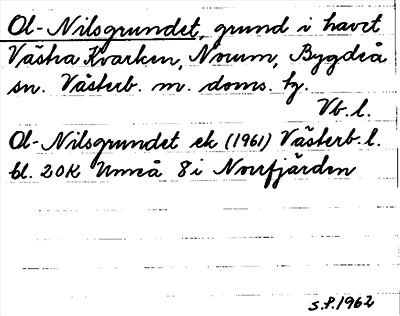 Ol-Nilsgrundet, grund i havet
Västra Kvarken, Norum, Bygdeå
sn. Västerb. m. doms. hg.
Vb. l.
Ol-Nilsgrundet ek (1961) Västerb. l.
bl. 20K Umeå 8 i Norrfjärden
S.P. 1962